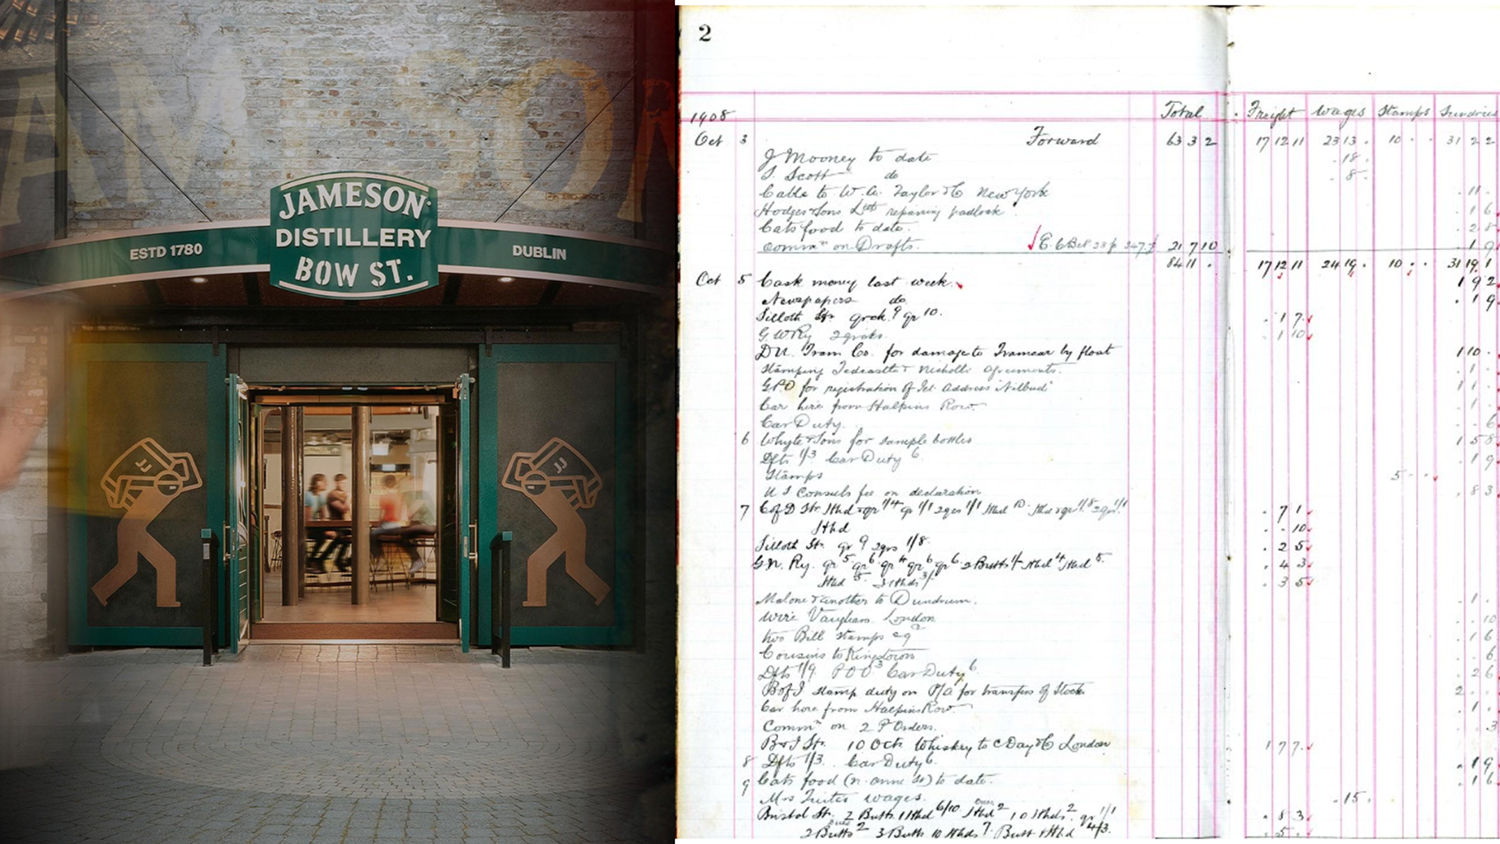 JAMESON
JAMESON
DISTILLERY
BOW ST.
ESTD 1780
DUBLIN
JJ
JJ
2
1908
Total Freight Wages Stamps Sundries
Oct 3 Forward 63 3 2 17 12 11 23 13 . 10 . . 31 2 2
J Mooney to date . 18 .
T. Scott do . 8 .
Cable to W. A. Taylor & Co New York . 11 .
Hodges & Sons Ltd repairing padlock . 1 6
Cats food to date. . 2 8
Commn on Drafts. 21 7 10 . 1 9
84 11 . 17 12 11 24 19 . 10 . . 31 19 1
Oct 5 Cask money last week. 1 9 2
Newspapers do. . 1 9
Silloth Str qrck. 9 qr 10. . 1 7
G W Ry 2 grcks . 1 10
D.U. Tram Co. for damage to Tramcar by float 1 10 .
Stamping Tedcastle & Nicholls Agreements. . 1 .
GPO for registration of Tel. Address 'Nilbud' 1 1 .
Car hire from Halpins Row. . 1 .
Car Duty. . . 6
6 Whyte & Sons for sample bottles 1 5 8
Dfts 1/3 Car Duty 6 . 1 9
Stamps 5 . .
U S Consuls fee on declaration . 8 3
7 . 7 1
Hhd . . 10
Silloth Str. qr 9 2qrs 1/8. . 2 5
G.N. Ry. . 4 3
. 3 5
Malone & another to Dundrum. . 1 .
Wire Vaughan London . . 10
two Bill Stamps . 1 6
Cousins to Kingstown . . 6
Dfts 1/9 P O O 3 Car Duty 6 . 2 6
B of I stamp duty on P/A for transfers of Stock 2 . .
Car hire from Halpins Row. . 1 .
Commn on 2 P Orders. . . 3
B & I Str. 10 Octs Whiskey to C Day & Co London 1 7 7 .
8 Dfts 1/3. Car Duty 6. . 1 9
9 Cats food (n. anne St) to date. . 1 6
Mrs wages. . 15 .
Bristol Str. 2 Butts 1 Hhd 6/10 Hhd 2 10 Hhds 2 qr 1/1 . 8 3
2 Butts 2 3 Butts 10 Hhds 7 Butt 1 Hhd 4/3. . 5 .